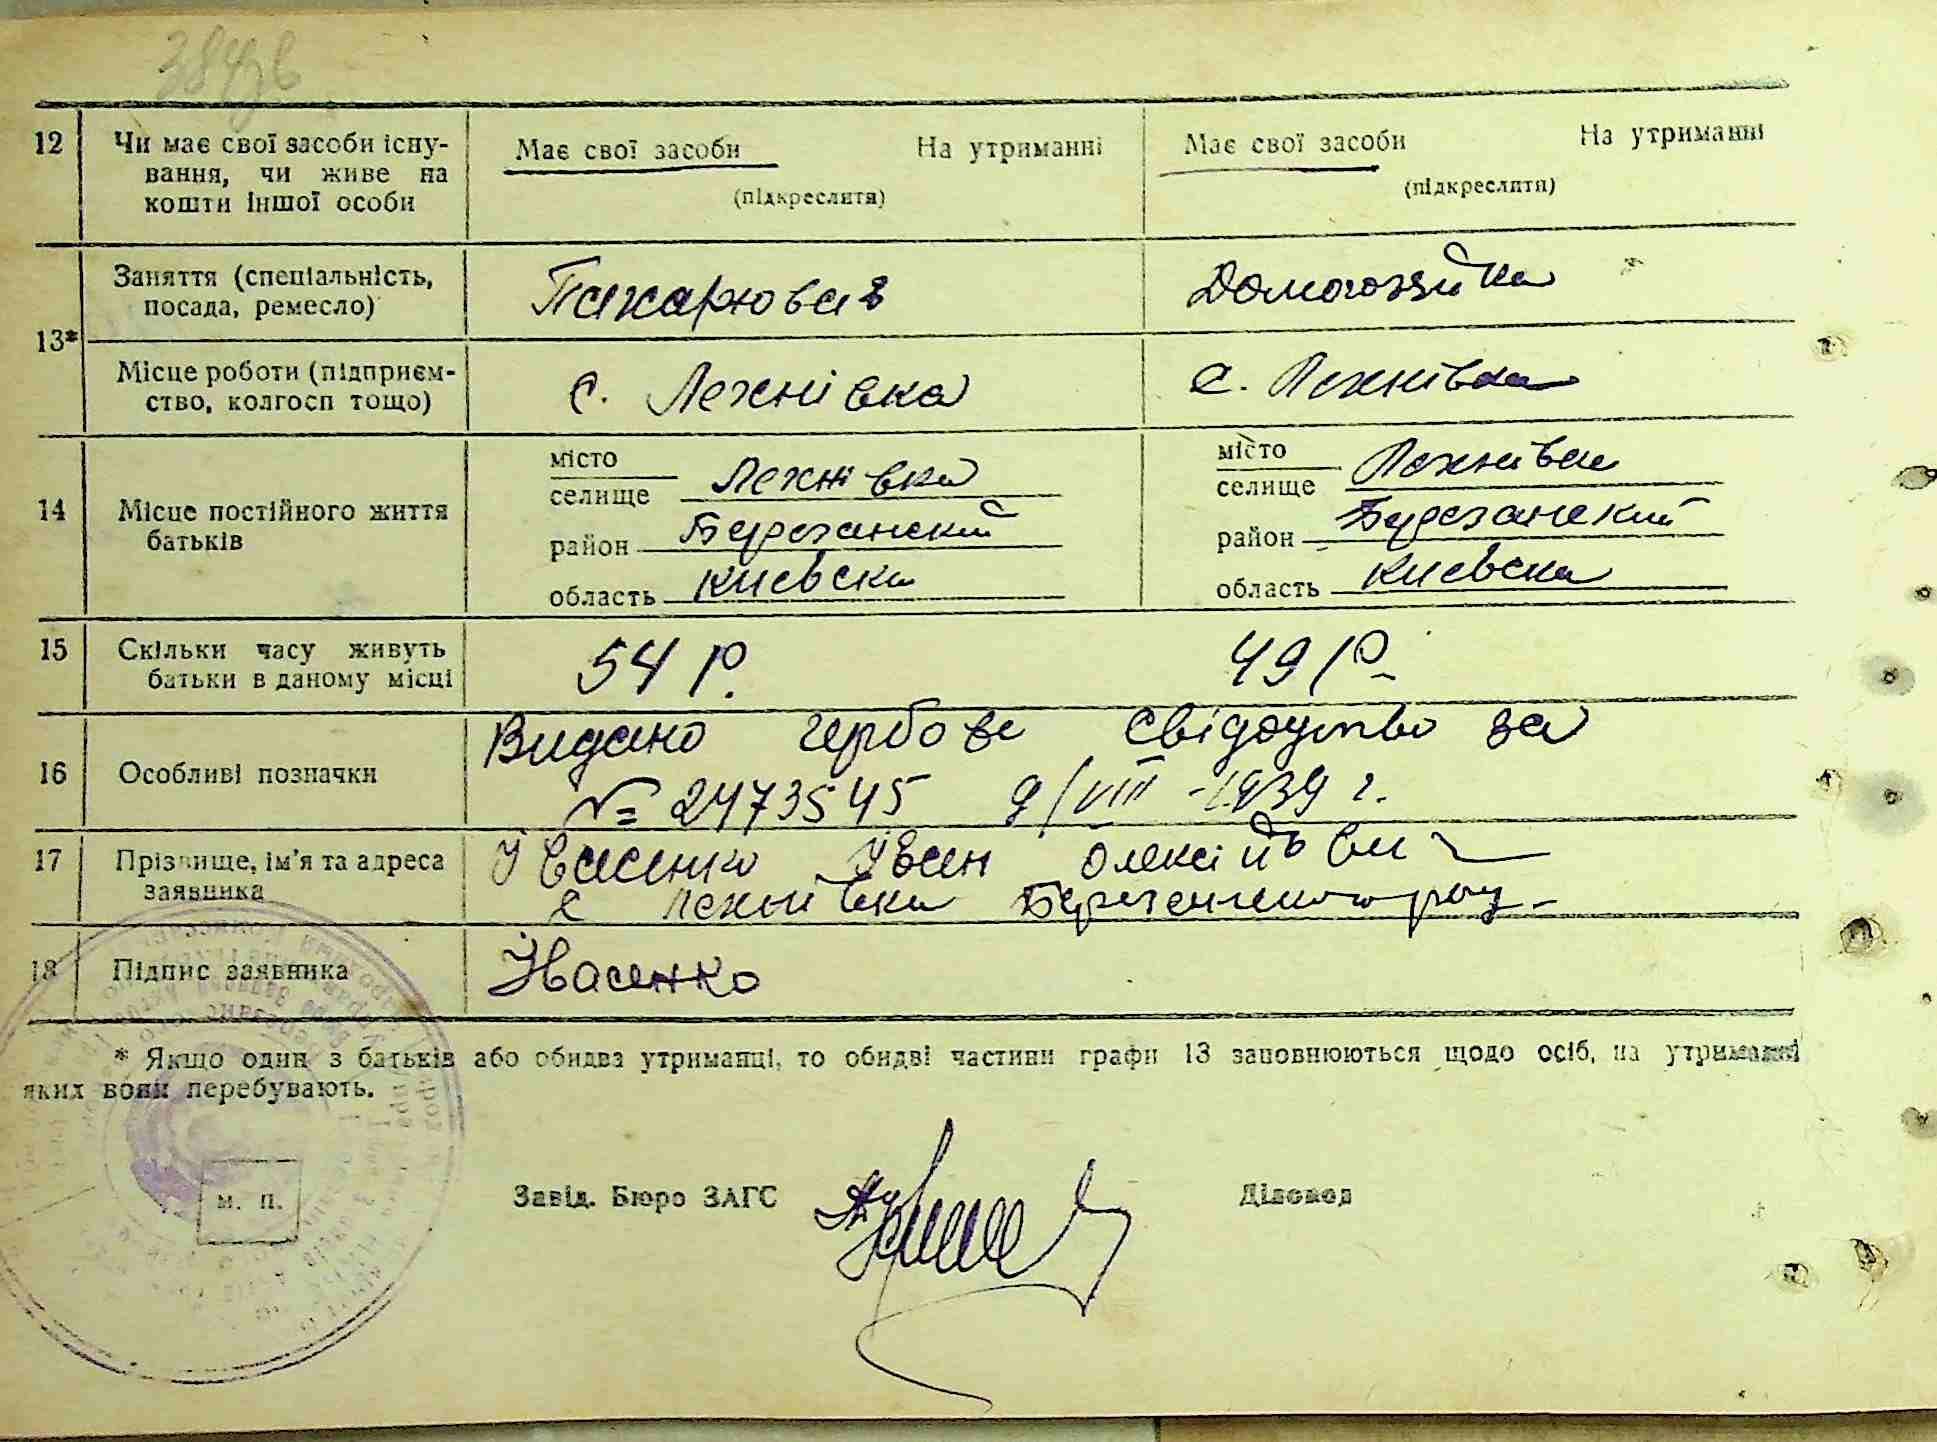 384зв
12 Чи має свої засоби існу- Має свої засоби На утриманні Має свої засоби На утриманні
вання, чи живе на (підкреслити) (підкреслити)
кошти іншої особи
Заняття (спеціальність, Домогозяйка
посада, ремесло)
13*
Місце роботи (підприєм- с. Лехнівка с. Лехнівка
ство, колгосп тощо)
місто місто
селище Лехнівка селище Лехнівка
14 Місце постійного життя
батьків
район Березанский район Березанский
область Киевска область Киевска
15 Скільки часу живуть 54 р. 49 р.
батьки в даному місці
Видано гербове свідоцтво за
16 Особливі позначки № 2473545 9/VIII - 1939 г.
17 Прізвище, ім'я та адреса Івасенко Іван Олексійович
заявника с Лехнівка Березанского рну-
18 Підпис заявника Івасенко
* Якщо один з батьків або обидва утриманці, то обидві частини графи 13 заповнюються щодо осіб, на утриманні
яких вони перебувають.
м. п. Завід. Бюро ЗАГС Діловод